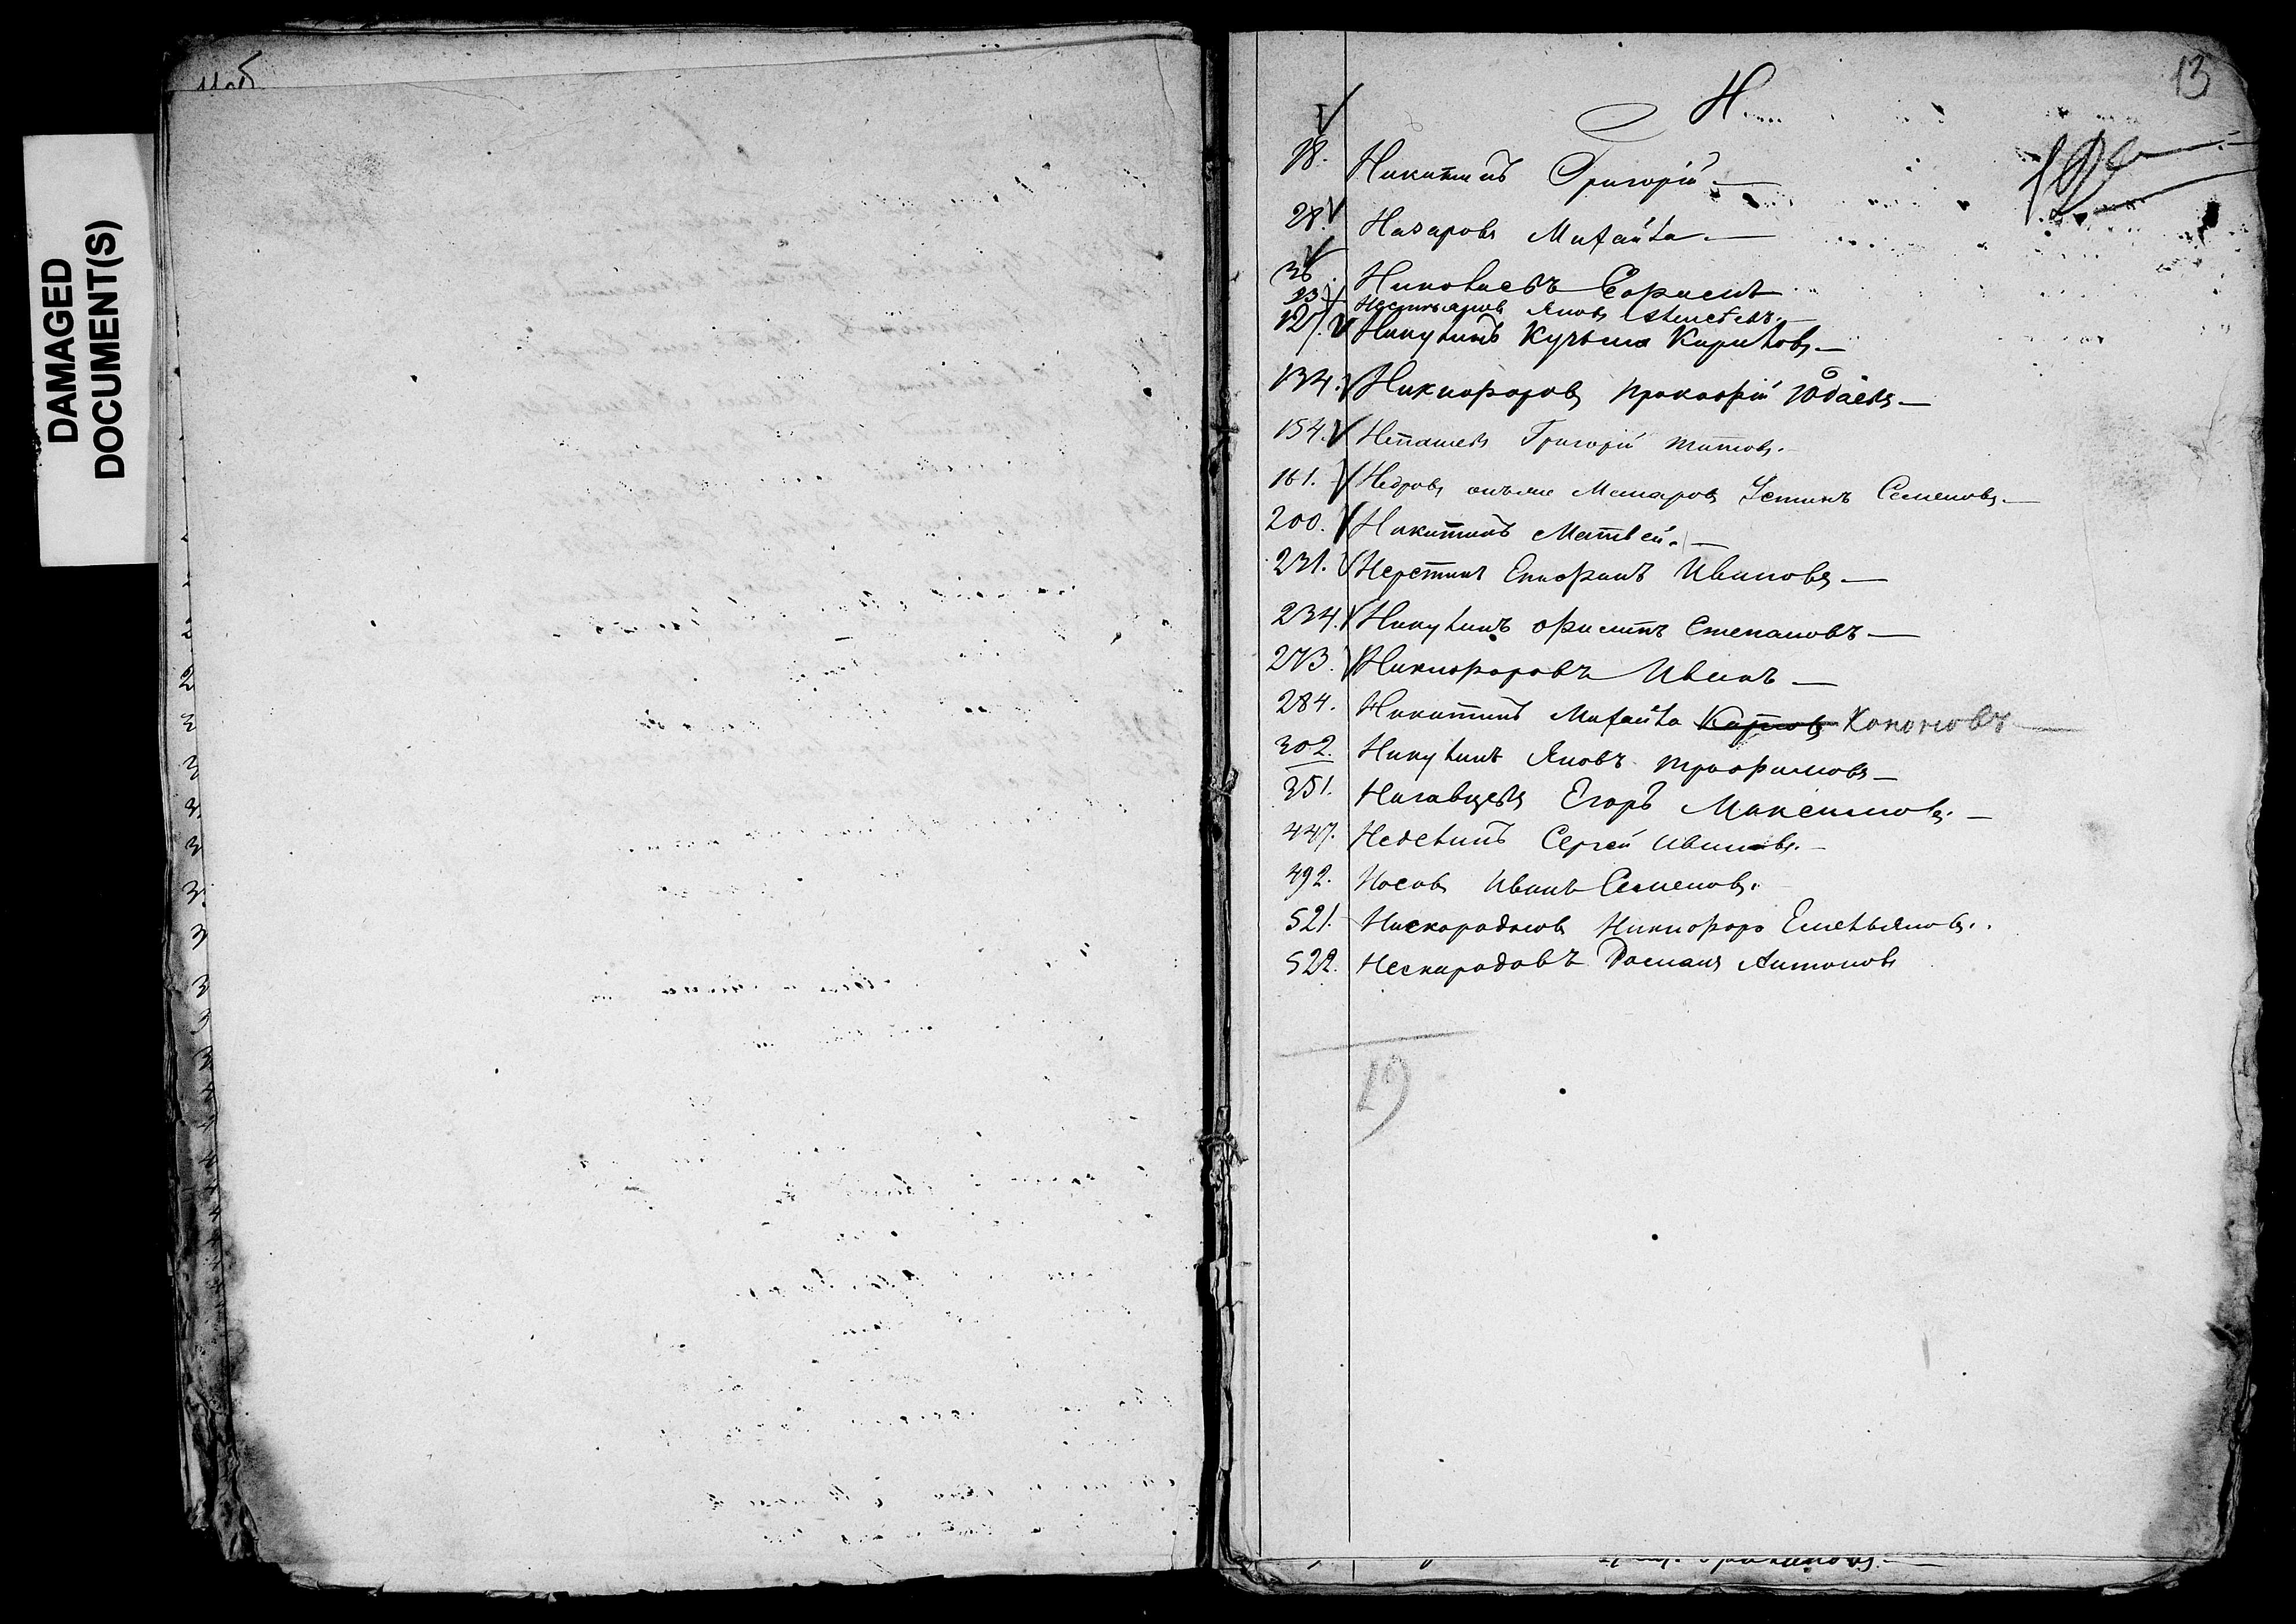 DAMAGED
DOCUMENT(S)
13
Н
18. Никитинъ Григорій
28. Назаровъ Михайла
36 Николаевъ Герасимъ
93 Яковъ Алексѣевъ
127. Никулинъ Кузьма Кириловъ
134. Никифоровъ Прокофій
154. Григорій Титовъ.
161. Недровъ онъ же Макаровъ Устинъ Семеновъ
200. Никитинъ Матвей.
231. Неретинъ Епифанъ Ивановъ
234. Никулинъ Филипъ Степановъ
273. Никифоровъ Иванъ
284. Никитинъ Михайла Карповъ Кононовъ
302. Никулинъ Яковъ Трофимовъ
351. Егоръ Максимовъ.
447. Неделинъ Сергей Ивановъ.
492. Носовъ Иванъ Семеновъ.
521. Нискородовъ Никифоръ Емельяновъ.
522. Нескородовъ Романъ Антоновъ
19